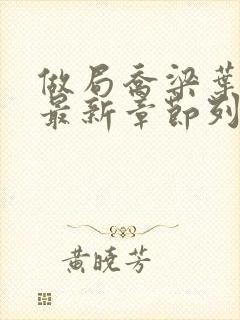 做局乔梁葉
最新章節列
黄曉芳